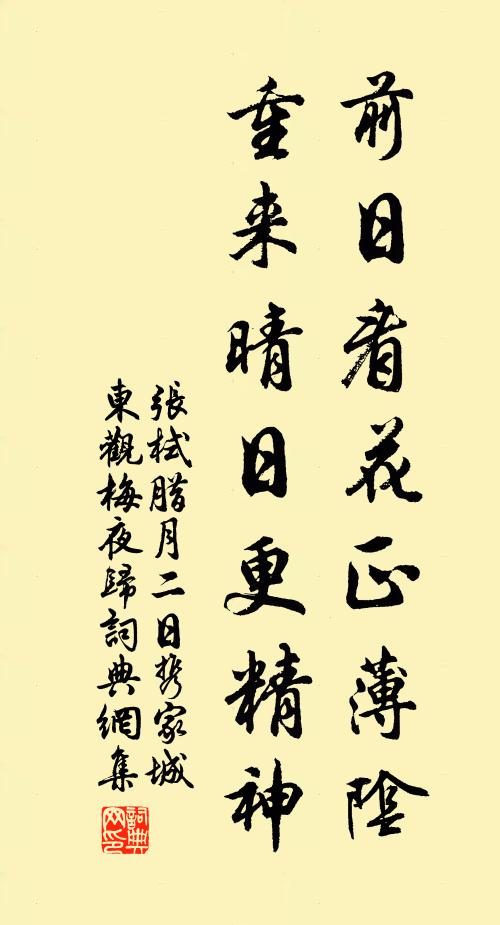 前日看花正薄陰
重来晴日更精神
張栻腊月二日携家城
東觀梅夜歸詞典網集
詞典网印